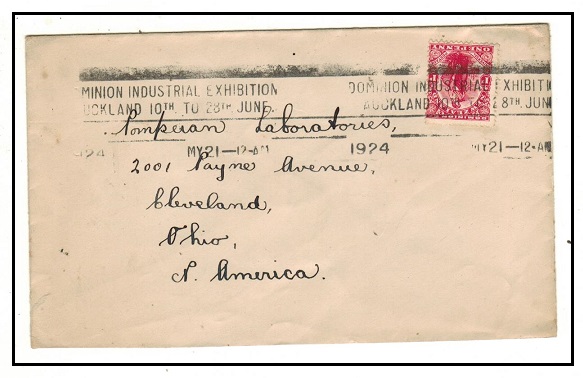 ONE PENNY
MINION INDUSTRIAL EXHIBITION DOMINION INDUSTRIAL EXHIBITI
UCKLAND 10TH TO 28TH JUNE. AUCKLAND 10TH 28TH JUN
Pompeian Laboratories,
1924 MY21—12-AM 1924 MY21—12-AM
2001 Payne Avenue,
Cleveland,
Ohio,
N. America.